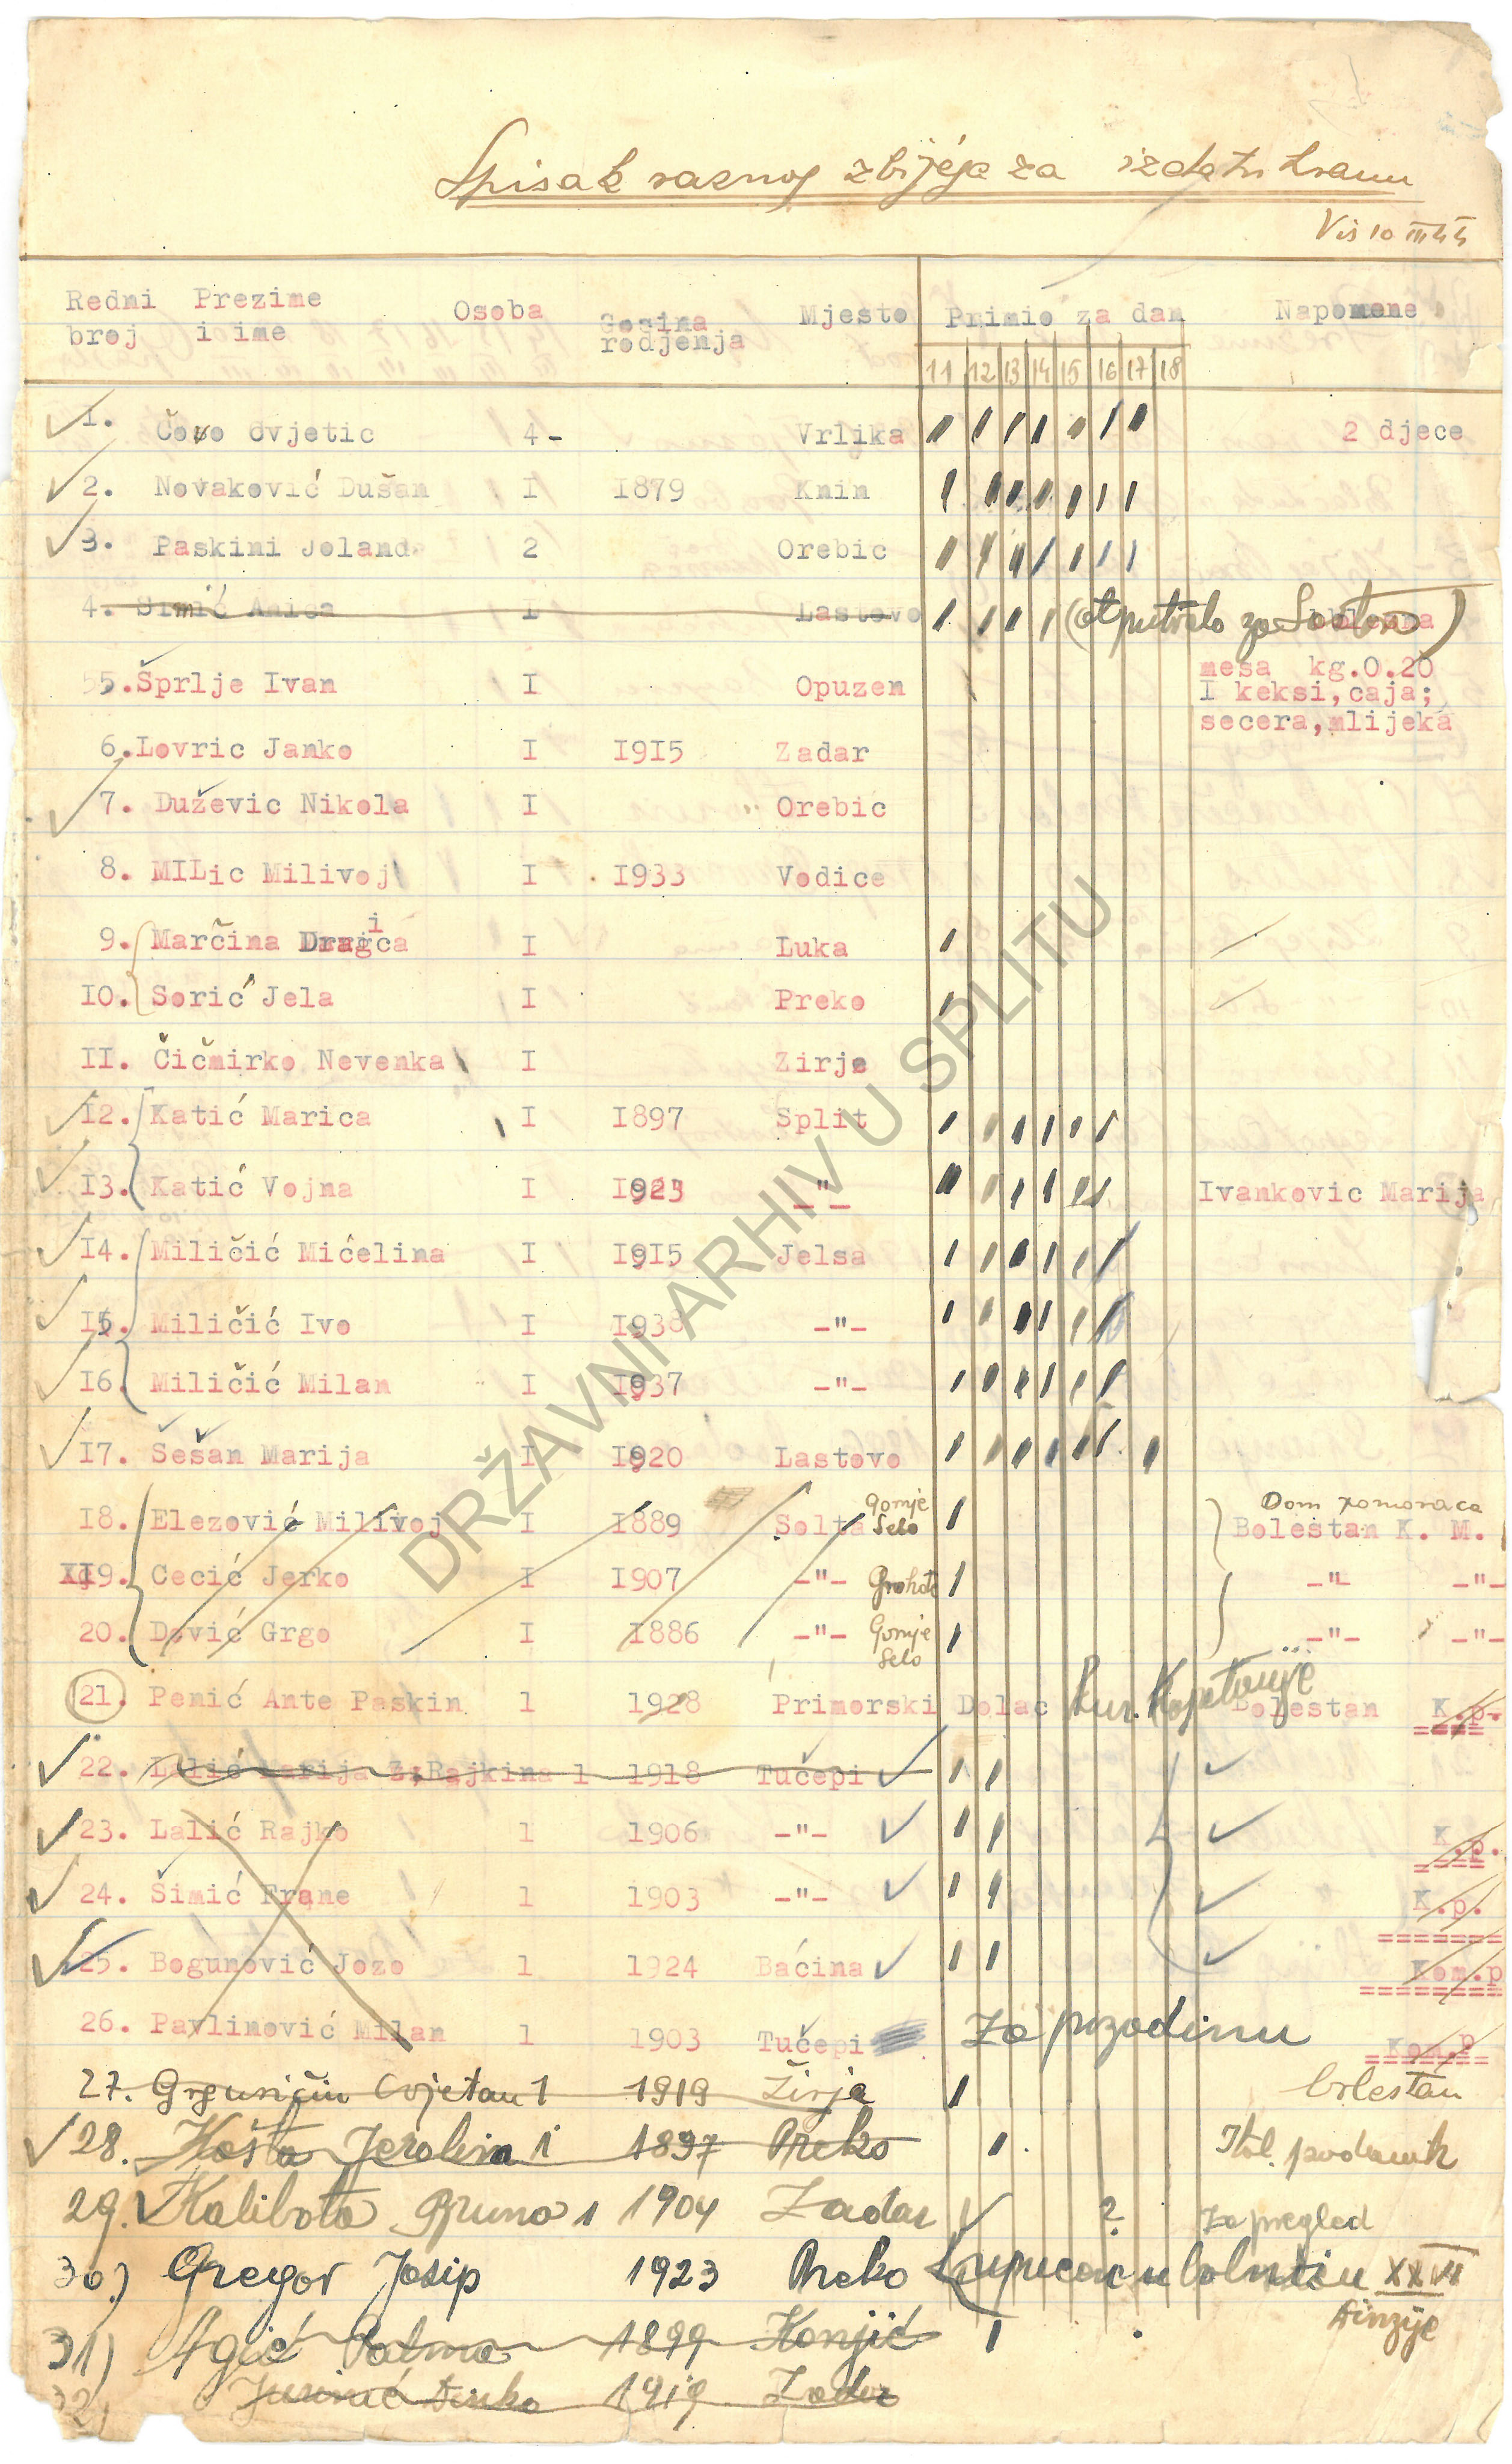 Spisak raznog zbijega za izdatu hranu
Vis 10 III 44
Redni broj Prezime i ime Osoba Godina rodjenja Mjesto Primio za dan Napomene
11 12 13 14 15 16 17 18
1. Čovo Cvjetic 4- Vrlika 2 djece
2. Novaković Dušan I 1879 Knin
3. Paskini Joland 2 Orebic
4. Simić Anica I Lastovo (otputovalo za Lastovo)
5. Šprlje Ivan I Opuzen mesa kg.0.20
I keksi, caja;
secera, mlijeka
6. Lovric Janko I 1915 Zadar
7. Dužević Nikola I " Orebić
8. MILic Milivoj I 1933 Vodice
9. Marčina Dragica I Luka
10. Sorić Jela I Preko
11. Čičmirko Nevenka I Zirje
12. Katić Marica I 1897 Split
13. Katić Vojna I 1923 -"- Ivankovic Marija
14. Miličić Mićelina I 1915 Jelsa
15. Miličić Ivo I 1938 -"-
16. Miličić Milan I 1937 -"-
17. Šešan Marija I 1920 Lastovo
18. Elezović Milivoj I 1889 Solta Gornje Selo Dom pomoraca
Bolestan K. M.
19. Cecić Jerko I 1907 -"- Grohote -"- -"-
20. Dević Grgo I 1886 -"- Gornje Selo -"- -"-
21. Penić Ante Paskin 1 1928 Primorski Dolac Bolestan K.p.
22. Lalić Marija Ž. Rajkina 1 1918 Tučepi
23. Lalić Rajko 1 1906 -"- K.p.
24. Šimić Frane 1 1903 -"- K.p.
25. Bogunović Jozo 1 1924 Baćina Kom.p
26. Pavlinović Milan 1 1903 Tučepi Za pozadinu Kom.p
27. Grguričin Cvjetan 1 1919 Žirje bolestan
28. Košta Jerolim 1 1897 Preko Ital. podanik
29. Kalibota Bruno 1 1904 Zadar ? Za pregled
30) Gregov Josip 1923 Preko XXVI
divizije
31) Agić Fatma 1899 Konjić
32) Dinko 1919 Zadar
DRŽAVNI ARHIV U SPLITU